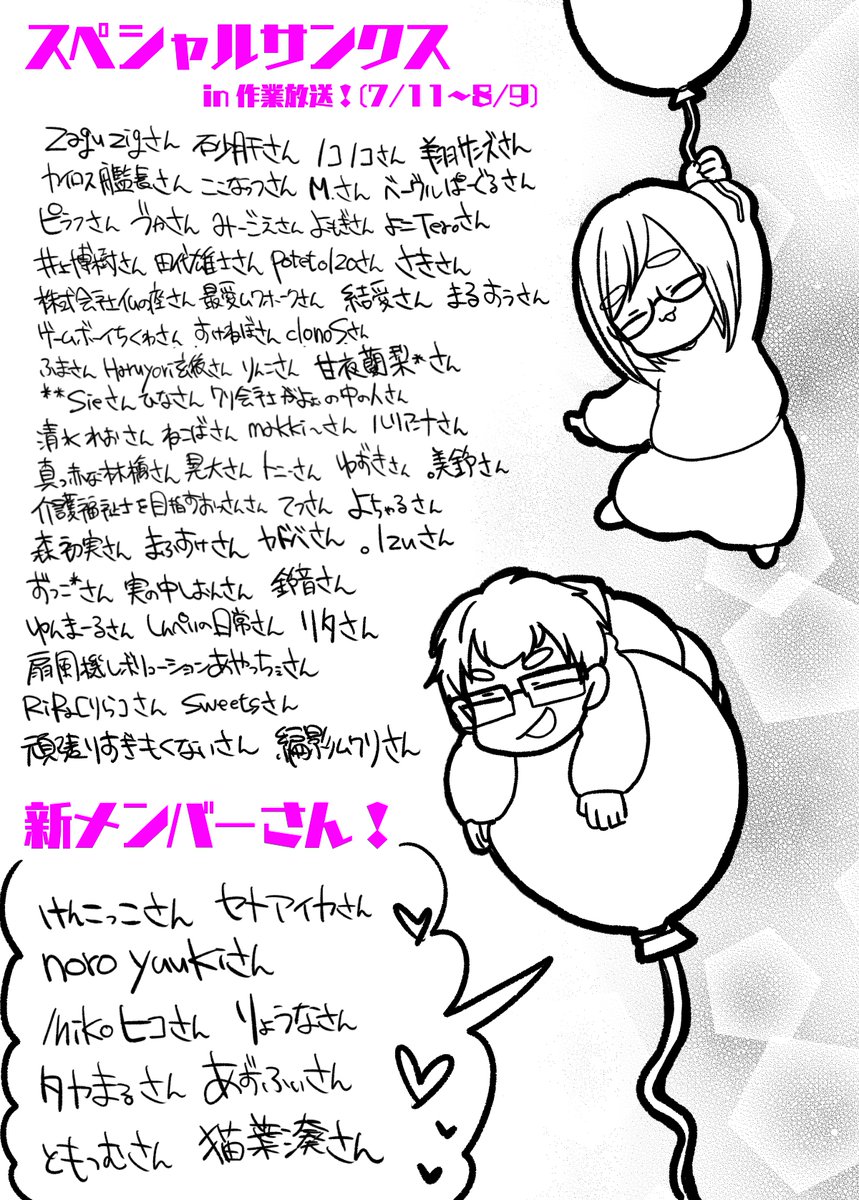 スペシャルサンクス
in 作業放送!(7/11〜8/9)
Zagu zigさん 砂肝さん ノコノコさん 翔サンズさん
カイロス艦長さん ここなっつさん M.さん ベーグルぱーぐるさん
ピラフさん づかさん みーごえさん よもぎさん よこTeroさん
井上博樹さん 田代雄士さん potetoizoさん さきさん
株式会社仏の座さん 最愛ムワホークさん 結愛さん まるすうさん
ゲームボーイちくわさん すけねぼさん clonoSさん
ふまさん Haruyori玄後さん りんこさん 甘夜蘭梨*さん
**Sieさん ひなさん クリ会社がよぉの中の人さん
清水れおさん ねこばさん makki〜さん ルリアーナさん
真っ赤な林檎さん 晃大さん トニーさん ゆずきさん 。美鈴さん
介護福祉士を目指すおっさんさん てつさん よちゃるさん
森初実さん まふすけさん ヤドベさん 。Izuさん
おっこ*さん 実の中しおんさん 鈴音さん
ゆんまーるさん しんぺいの日常さん リタさん
扇風機レボリューションあやっちぃさん
RiRaCりらコさん Sweetsさん
頑張りすぎもくないさん 編影ムクリさん
新メンバーさん!
けんこっこさん セナアイカさん
noro yuukiさん
hikoヒコさん りょうなさん
タヤまるさん あずふぃさん
ともつむさん 猫葉湊さん